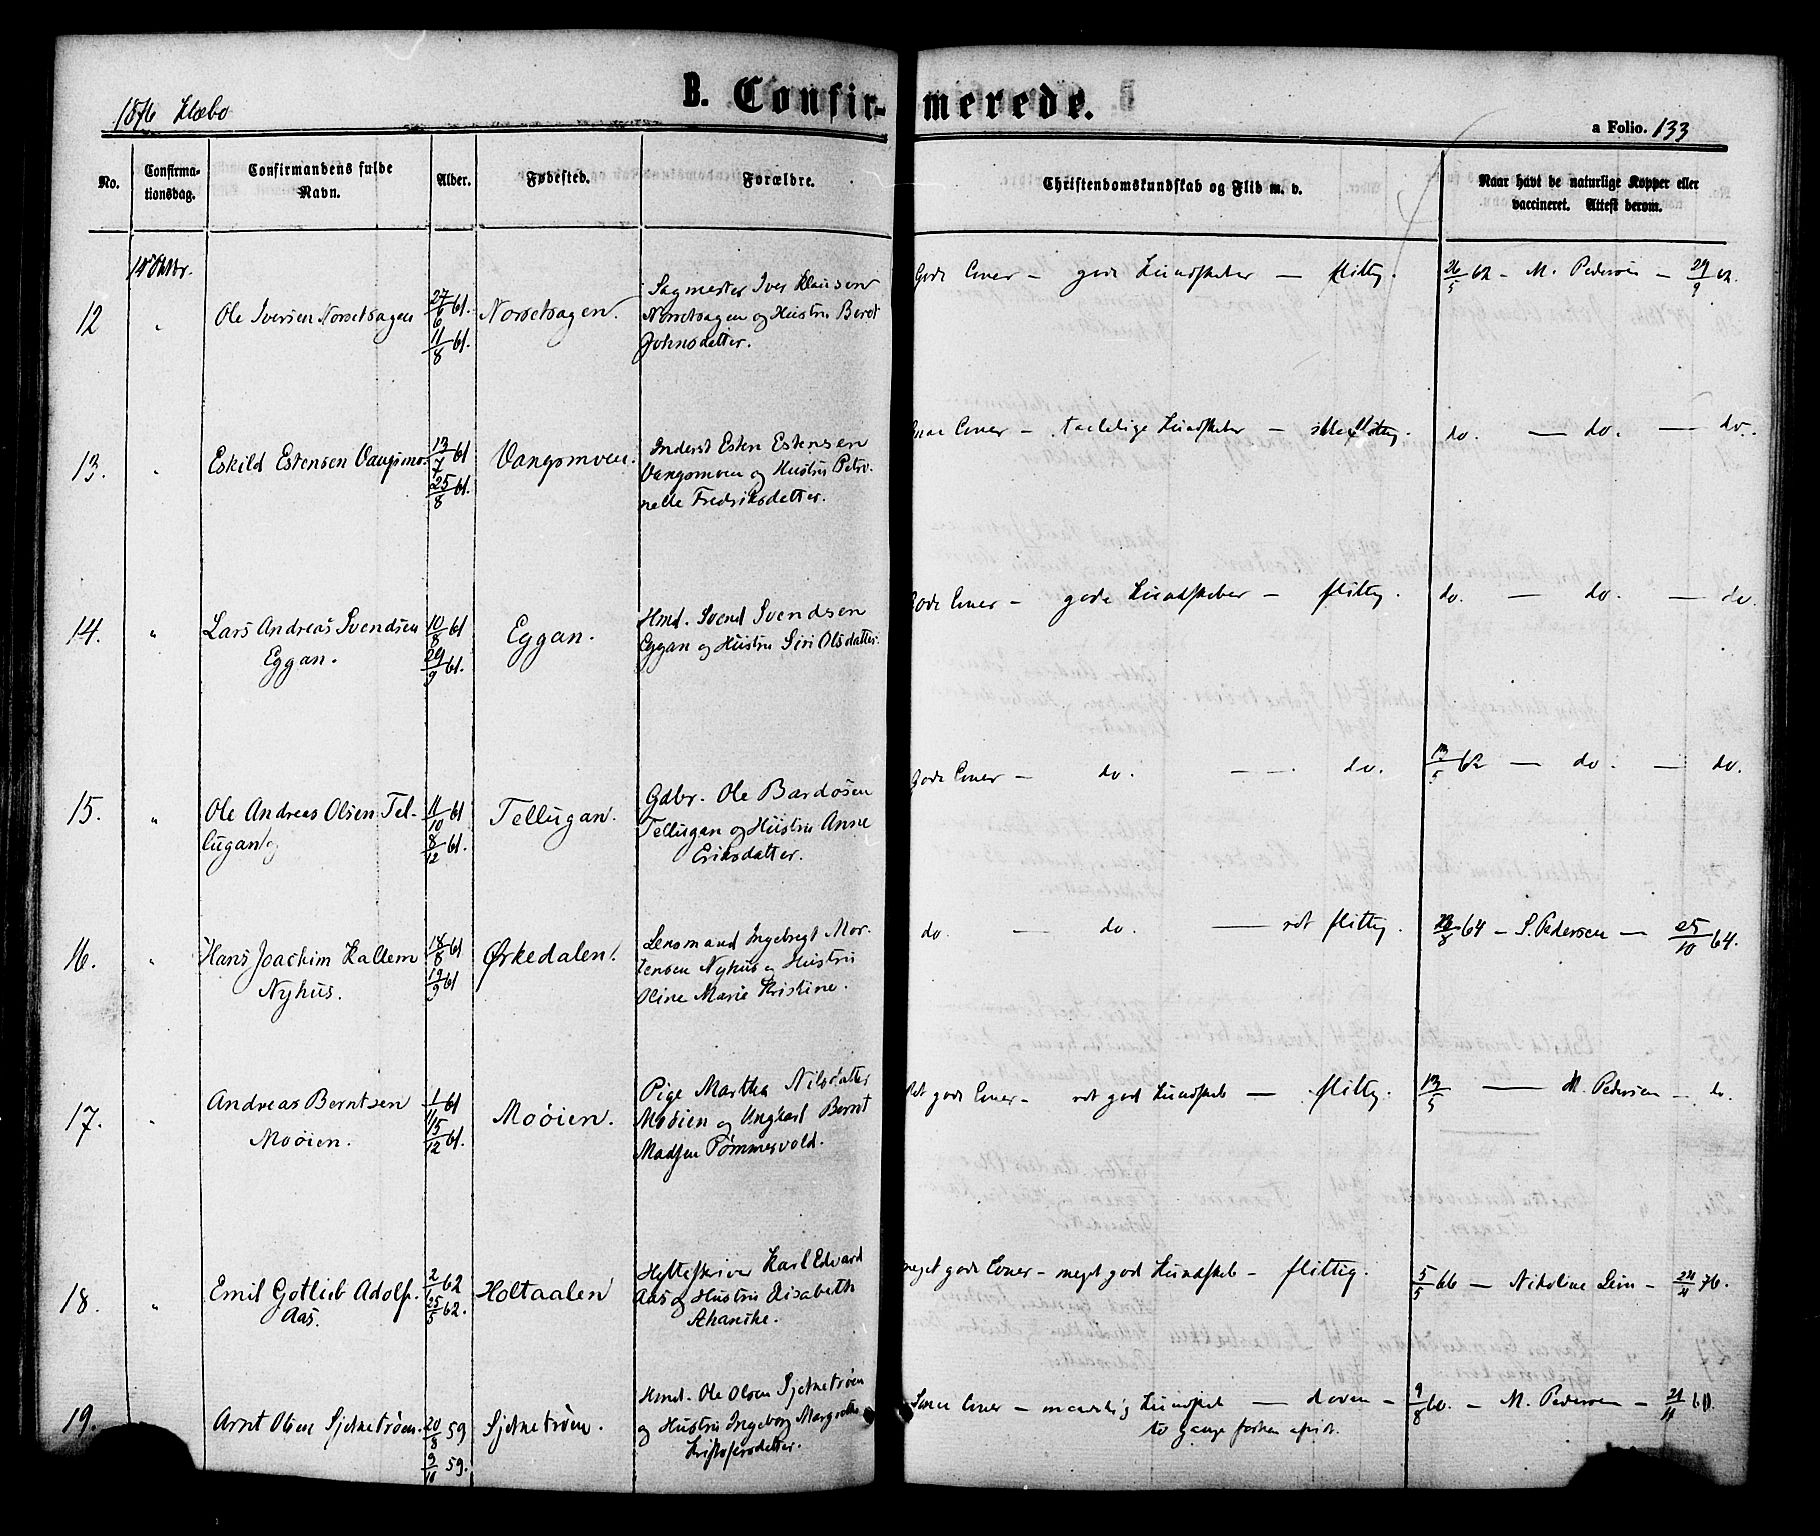 1876 Klæbo
B. Confir-merede.
a Folio. 133
No.
Confirma-
tionsdag.
Confirmandens fulde
Navn.
Alder.
Fødested.
Forældre.
Christendomskundskab og Flid m. v.
Naar havt de naturlige Kopper eller
vaccineret. Attest derom.
12 " Ole Iversen Norsetsagen 27/6 61. 11/8 61. Norsetsagen.
Sagmester Iver Klausen
Norsetsagen og Hustru Beret
Johnsdatter.
Gode Evner — gode Kundskaber — flittig. 26/5 62 — M. Pedersen — 29/9 62.
13. " Eskild Estensen Vangsmo. 13/7 61 25/8 61. Vangsmoen.
Inderst Esten Estensen
Vangsmoen og Hustru Petro-
nelle Fredriksdatter.
Evner — taalelige Kundskaber — flittig. do. — do. — do.
14. " Lars Andreas Svendsen
Eggan. 10/8 61 29/9 61. Eggan.
Hmd. Svend Svendsen
Eggan og Hustru Siri Olsdatter.
Gode Evner — gode Kundskaber — flittig. do. — do. — do.
15. " Ole Andreas Olsen Tel-
lugan 11/10 61 8/12 61. Tellugan.
Gdbr. Ole Bardosen
Tellugan og Hustru Anne
Eriksdatter.
Gode Evner — do. — do. 13/5 62 — do. — do.
16. " Hans Joachim Kallem
Nyhus. 18/8 61 19/9 61 Ørkedalen.
Lensmand Ingebregt Mor-
tensen Nyhus og Hustru
Oline Marie Kristine.
do. — do. — ret flittig. /8 64 — S. Pedersen — 25/10 64.
17. " Andreas Berntsen
Moøien. 1/11 61 15/12 61. Moøien.
Pige Martha Nilsdatter
Moøien og Ungkarl Bernt
Madsen Tømmervold.
Ret gode Evner — ret god Kundskab — flittig. 13/5 — M. Pedersen — do.
18. " Emil Gotlieb Adolf
Aas. 2/1 62 25/5 62. Holtaalen
Hytteskriver Karl Edvard
Aas og Hustru Elisabeth
meget gode Evner — meget god Kundskab — flittig. 5/5 66 — Nikoline — 24/4 76.
19. Arnt Olsen Sjetnetrøen. 20/8 59 9/10 59. Sjetnetrøen.
Hmd. Ole Olsen Sjetnetrøen
og Hustru Ingeborg Margrethe
Kristofersdatter.
Evner — Kundskab — doven — 9/8 60. — M. Pedersen — 21/11 60
to gange